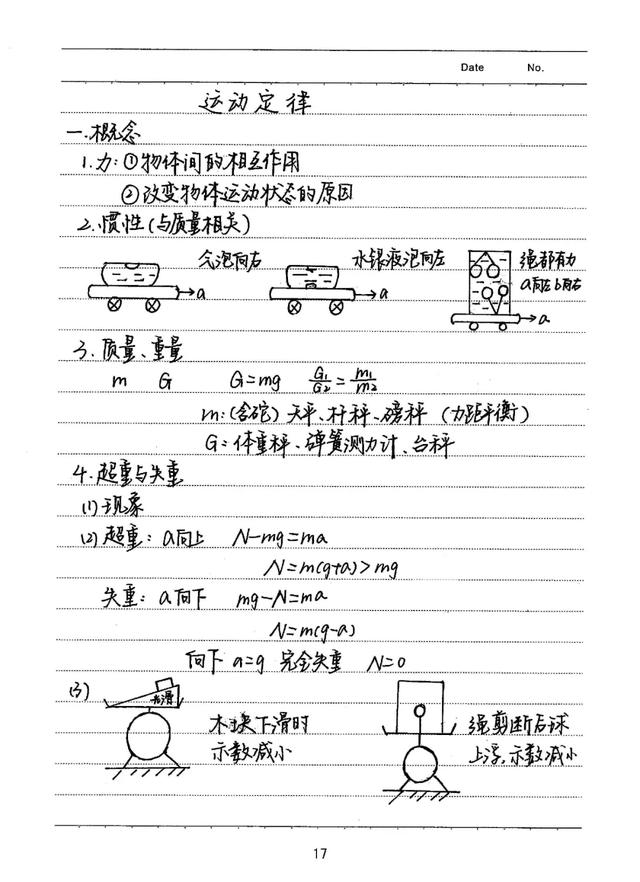 Date No.
运动定律
一.概念
1.力:①物体间的相互作用
②改变物体运动状态的原因
2.惯性(与质量相关)
气泡向右 水银液泡向左 绳都有力
a a a向左 b向右
a
3.质量、重量
m G G=mg G₁/G₂=m₁/m₂
m:(含砣)天平、杆秤、磅秤 (力距平衡)
G:体重秤、弹簧测力计、台秤
4.超重与失重
(1)现象
(2)超重:a向上 N-mg=ma
N=m(g+a)>mg
失重:a向下 mg-N=ma
N=m(g-a)
向下a=g 完全失重 N=0
(3) 光滑
木块下滑时 绳剪断后球
示数减小 上浮,示数减小
17